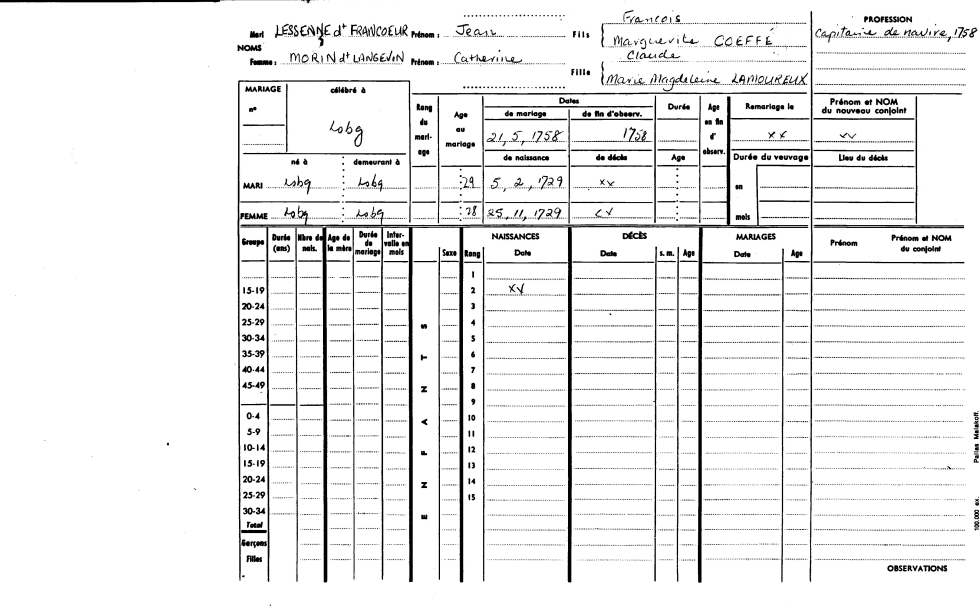 François PROFESSION
Mari LESSENNE dt FRANCOEUR Prénom : Jean Fils Marguerite COEFFÉ Capitaine de navire, 1758
NOMS
Femme : MORIN dt LANGEVIN Prénom : Catherine Fille Claude
Marie Magdeleine LAMOUREUX
MARIAGE célébré à Rang du mariage Age au mariage Dates Durée Age en fin d' observ. Remariage le Prénom et NOM du nouveau conjoint
n° de mariage de fin d'observ.
Lsbg 21, 5, 1758 1758 xx xx
né à demeurant à de naissance de décès Age Durée du veuvage Lieu du décès
MARI Lsbg Lsbg 29 5, 2, 1729 xx en
FEMME Lsbg Lsbg 28 25, 11, 1729 xx mois
Groupe Durée (ans) Nbre de nais. Age de la mère Durée de mariage Intervalle en mois Sexe Rang NAISSANCES DÉCÈS MARIAGES Prénom Prénom et NOM du conjoint
Date Date s. m. Age Date Age
1
15-19 2 xx
20-24 3
25-29 S 4
30-34 5
35-39 T 6
40-44 7
45-49 N 8
9
0-4 A 10
5-9 11
10-14 F 12
15-19 13
20-24 N 14
25-29 15
30-34 E
Total
Garçons
Filles
OBSERVATIONS
100.000 ex. Pairies Malakoff.